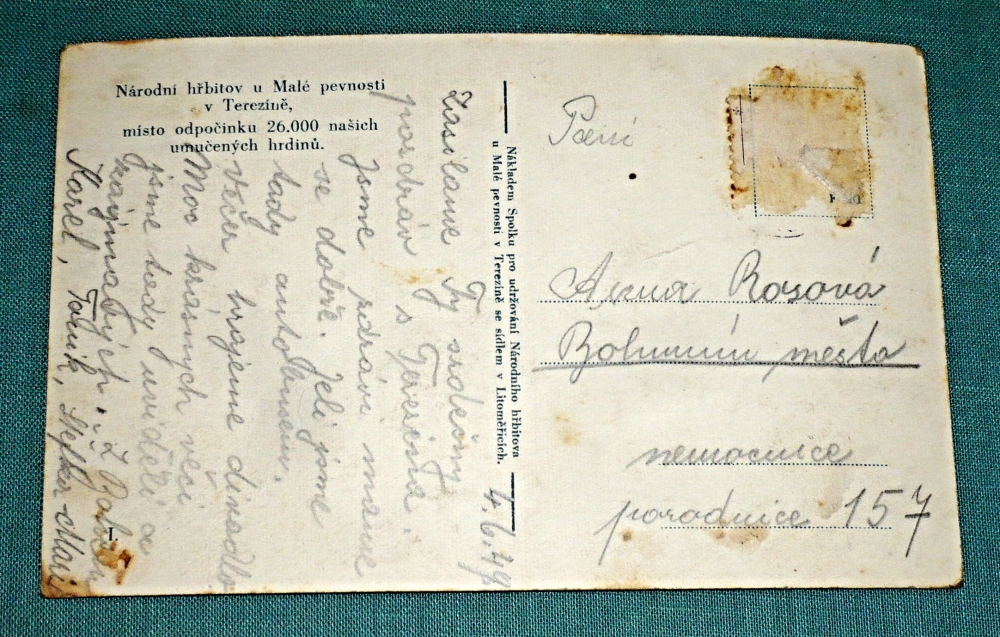 Národní hřbitov u Malé pevnosti
v Terezíně,
místo odpočinku 26.000 našich
umučených hrdinů.
4.6.49
Zasílame Ty srdečný
pozdrav s Terezína.
Jsme zdrávi máme
se dobře. Jeli jsme
tady autobusem.
Večer hrajeme divadlo
Moc krásných věcí
jsme tady uviděli a
zajímavých.
Karel, Toník,
1.
Nákladem Spolku pro udržování Národního hřbitova
u Malé pevnosti v Terezíně se sídlem v Litoměřicích.
Paní
Anna Rosová
Bohumín město
nemocnice
porodnice 157